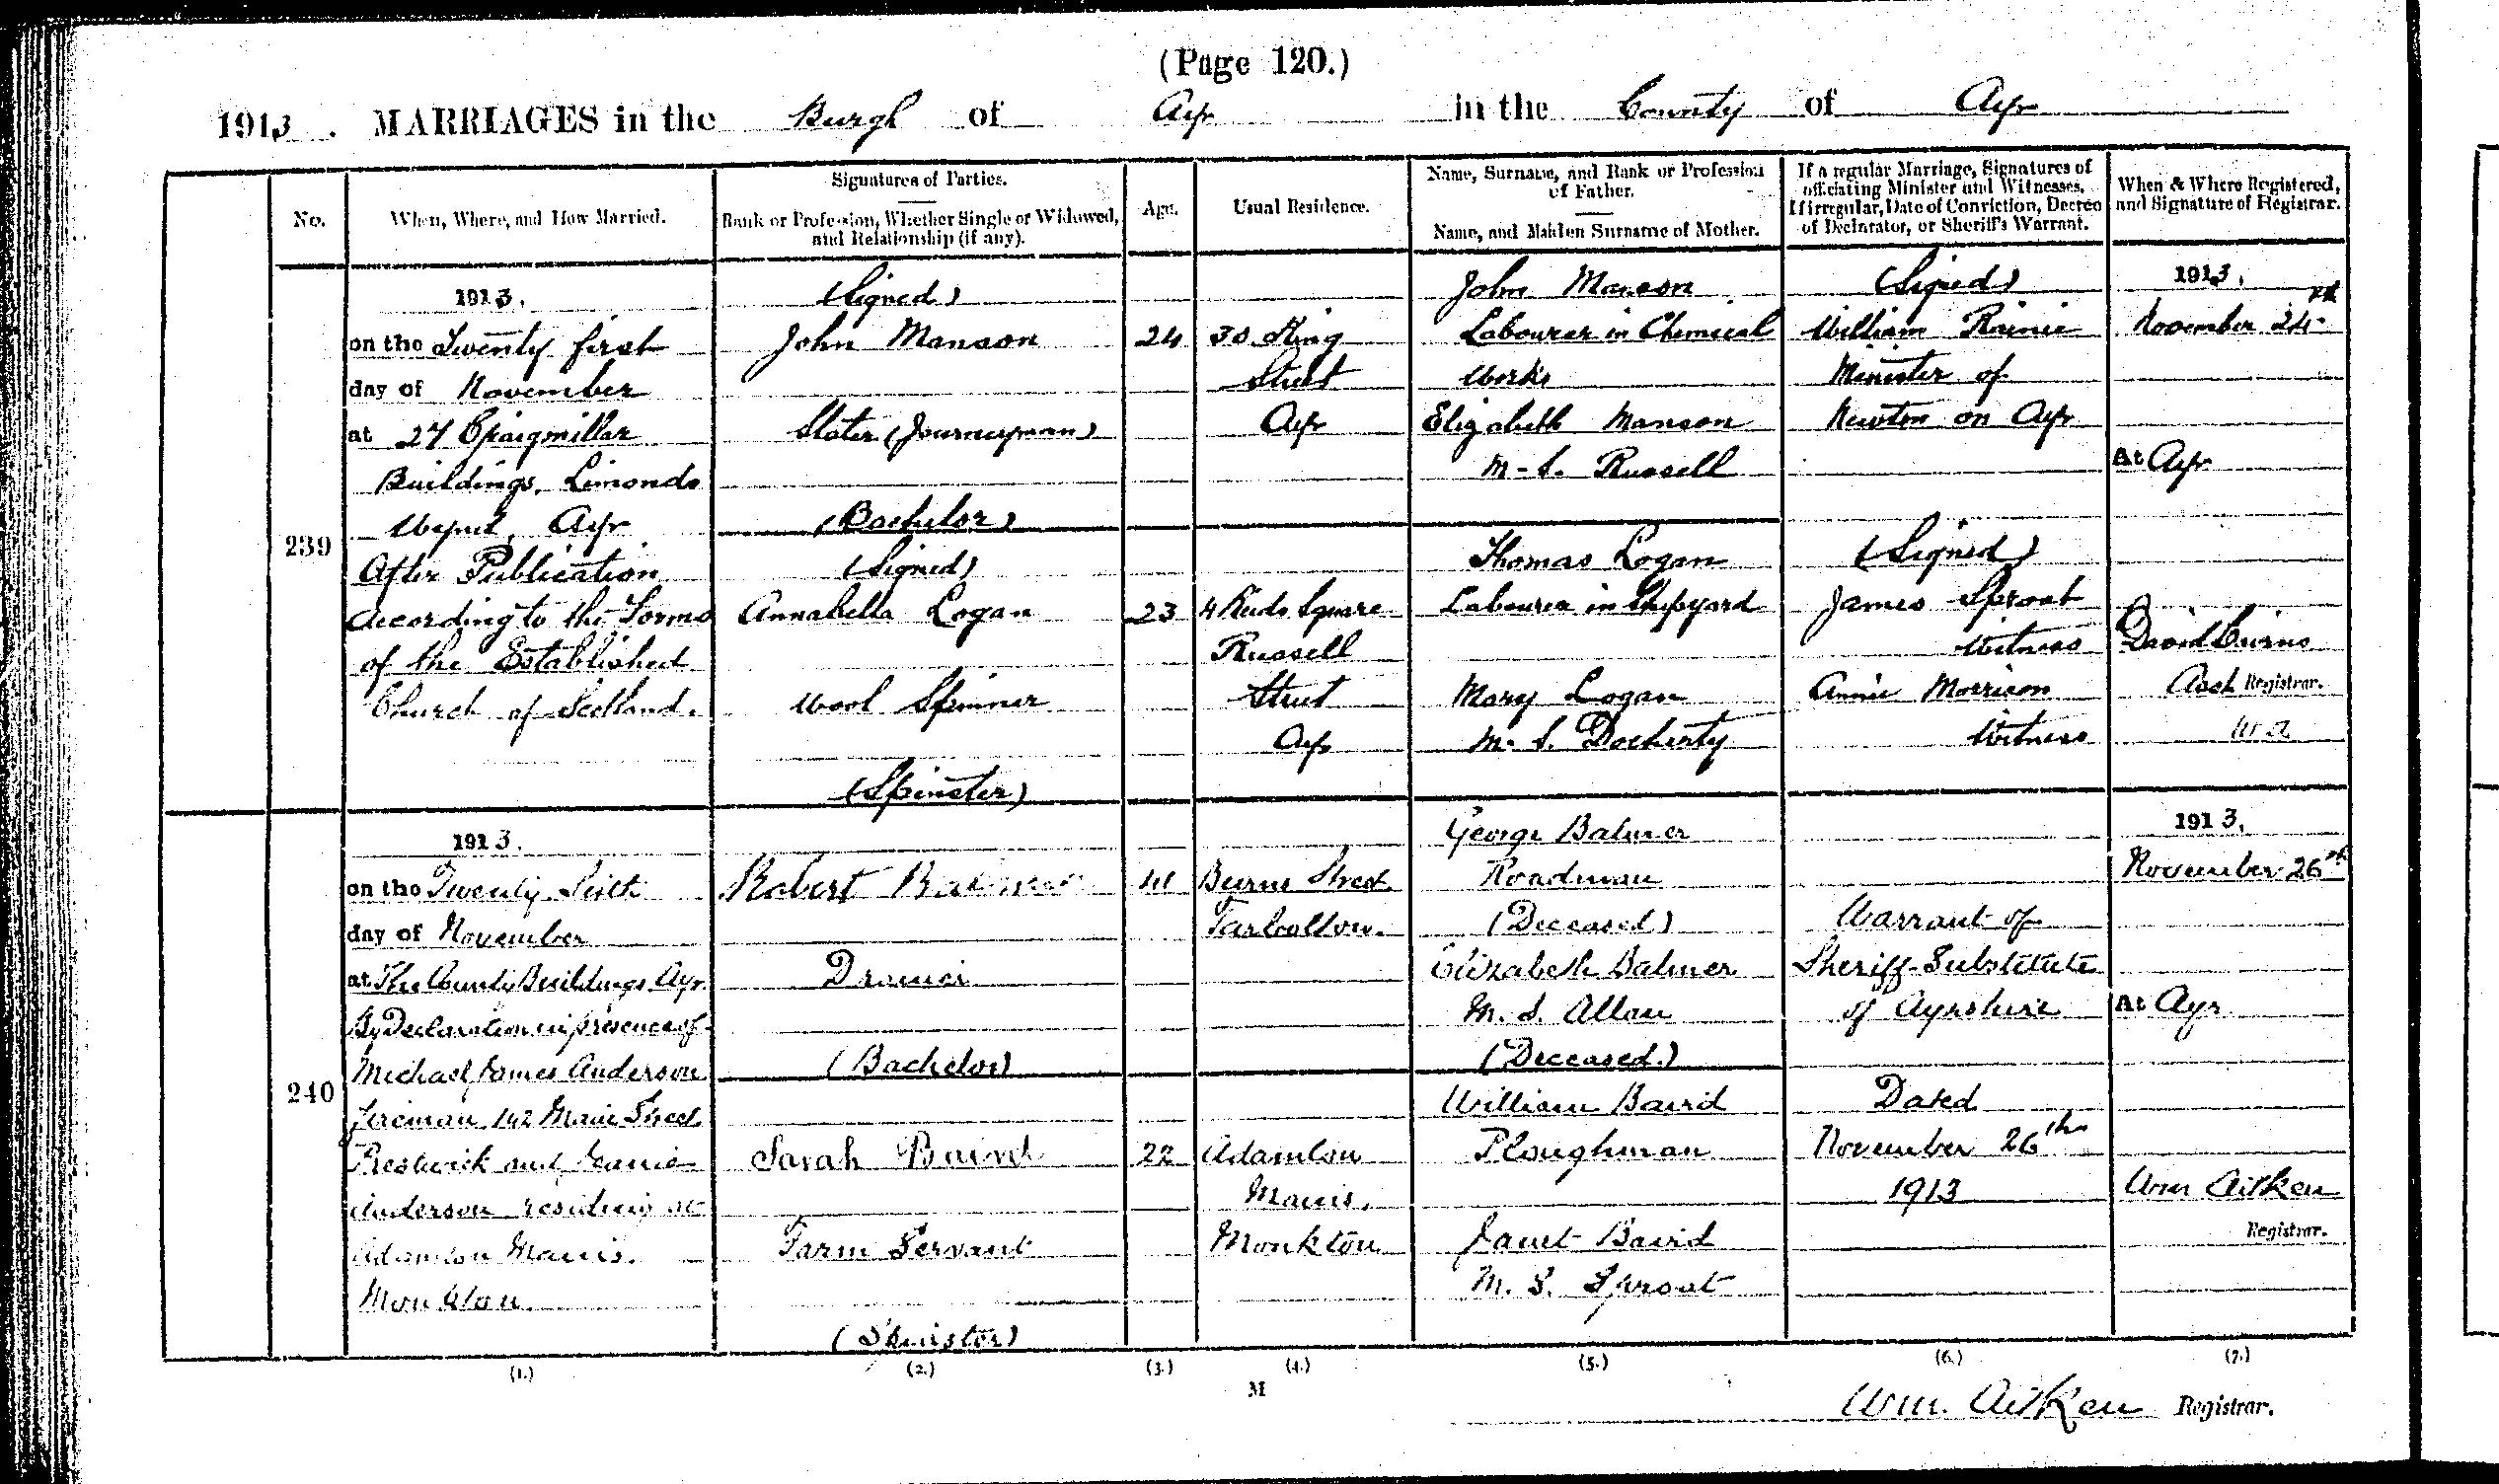 (Page 120.)
1913. MARRIAGES in the Burgh of Ayr in the County of Ayr
No.
When, Where, and How Married.
Signatures of Parties.
Rank or Profession, Whether Single or Widowed,
and Relationship (if any).
Age.
Usual Residence.
Name, Surname, and Rank or Profession
of Father.
Name, and Maiden Surname of Mother.
If a regular Marriage, Signatures of
officiating Minister and Witnesses.
If irregular, Date of Conviction, Decree
of Declarator, or Sheriff's Warrant.
When & Where Registered,
and Signature of Registrar.
239
1913.
on the Twenty first
day of November
at 27 Craigmillar
Buildings, Limonds
Wynd, Ayr
After Publication
according to the Forms
of the Established
Church of Scotland.
(Signed)
John Manson
Slater (Journeyman)
(Bachelor)
(Signed)
Annabella Logan
Wool Spinner
(Spinster)
24
23
30 King
Street
Ayr
4 Reids Square
Russell
Street
Ayr
John Manson
Labourer in Chemical
Works
Elizabeth Manson
M.S. Russell
Thomas Logan
Labourer in Shipyard
Mary Logan
M.S. Docherty
(Signed)
William Rainie
Minister of
Newton on Ayr
(Signed)
James Sproat
Witness
Annie Morrison
Witness
1913.
November 24th
At Ayr
David Cairns
Asst Registrar.
W.A.
240
1913.
on the Twenty Sixth
day of November
at The County Buildings Ayr.
By Declaration in presence of
Michael James Anderson
Fireman, 142 Main Street
Prestwick and Jeanie
Anderson residing at
Adamton Mains.
Monkton
Robert Balmer
Drainer
(Bachelor)
Sarah Baird
Farm Servant
(Spinster)
41
22
Burns Street
Tarbolton.
Adamton
Mains.
Monkton
George Balmer
Roadman
(Deceased)
Elizabeth Balmer
M.S. Allan
(Deceased.)
William Baird
Ploughman
Janet Baird
M.S. Sproat
Warrant of
Sheriff-Substitute
of Ayrshire
Dated
November 26th
1913
1913.
November 26th
At Ayr
Wm Aitken
Registrar.
(1.) (2.) (3.) (4.) (5.) (6.) (7.)
M
Wm. Aitken Registrar.